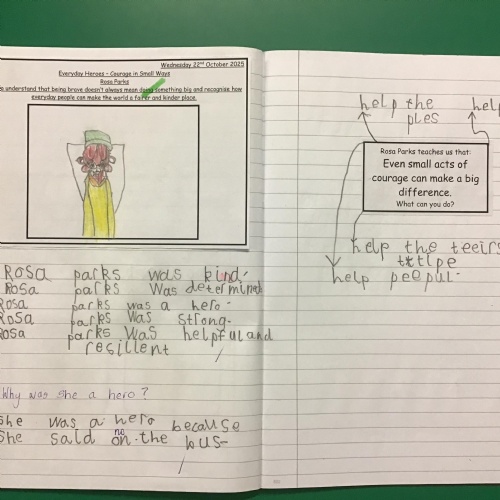 Wednesday 22nd October 2025
Everyday Heroes - Courage in Small Ways
Rosa Parks
understand that being brave doesn't always mean doing something big and recognise how
everyday people can make the world a fairer and kinder place.
Rosa parks was kind.
Rosa parks was determined
Rosa parks was a hero.
Rosa parks was strong.
Rosa parks was helpful and
resillent
Why was she a hero?
She was a hero because
She said no on the bus
help the
ples
help
Rosa Parks teaches us that:
Even small acts of
courage can make a big
difference.
What can you do?
help the teeirs
help peepul.